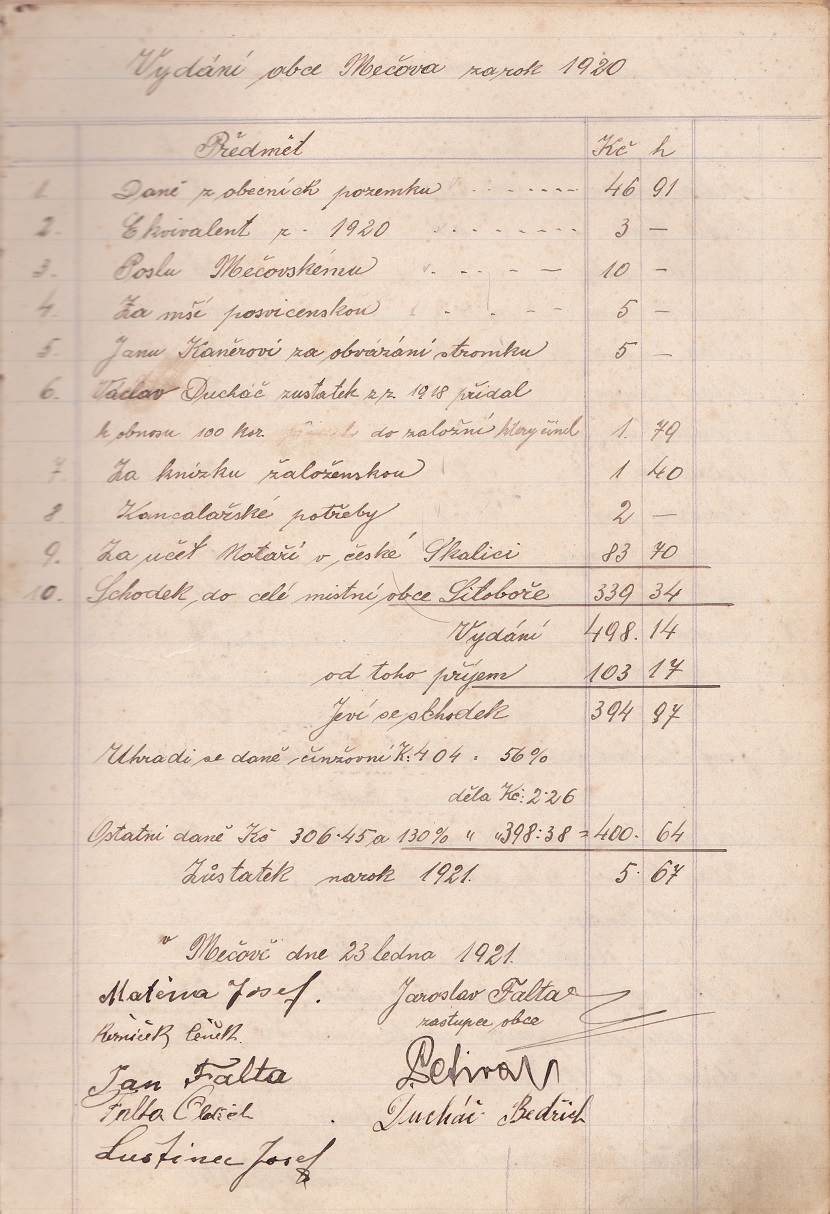 Vydání obce Mečova za rok 1920
Předmět Kč h
1. Daně z obecních pozemku 46 91
2. Ekvivalent r. 1920 3 —
3. Poslu Mečovskému 10 -
4. Za mší posvícenskou 5 —
5. Janu Kaněrovi za obvázání stromku 5 —
6. Václav Ducháč zustatek z r. 1918 přidal
k obnosu 100 kor. do založní který činil 1. 79
7. Za knížku založenskou 1 40
8. Kancalařské potřeby 2 —
9. Za učét Notaři v české Skalici 83 70
10. Schodek do celé mistní obce Litoboře 339 34
Vydání 498. 14
od toho příjem 103 17
Jeví se schodek 394 97
Uhradi se daně činžovní K: 404 . 56%
děla Kč: 2·26
Ostatni daně Kč 306·45 a 130% " " 398:38 = 400. 64
Zůstatek na rok 1921. 5. 67
v Mečově dne 23 ledna 1921.
Matěna Josef. Jaroslav Falta
zastupce obce
Čeněk
Jan Falta
Falta Oldřich . Ducháč Bedřich
Luštinec Josef